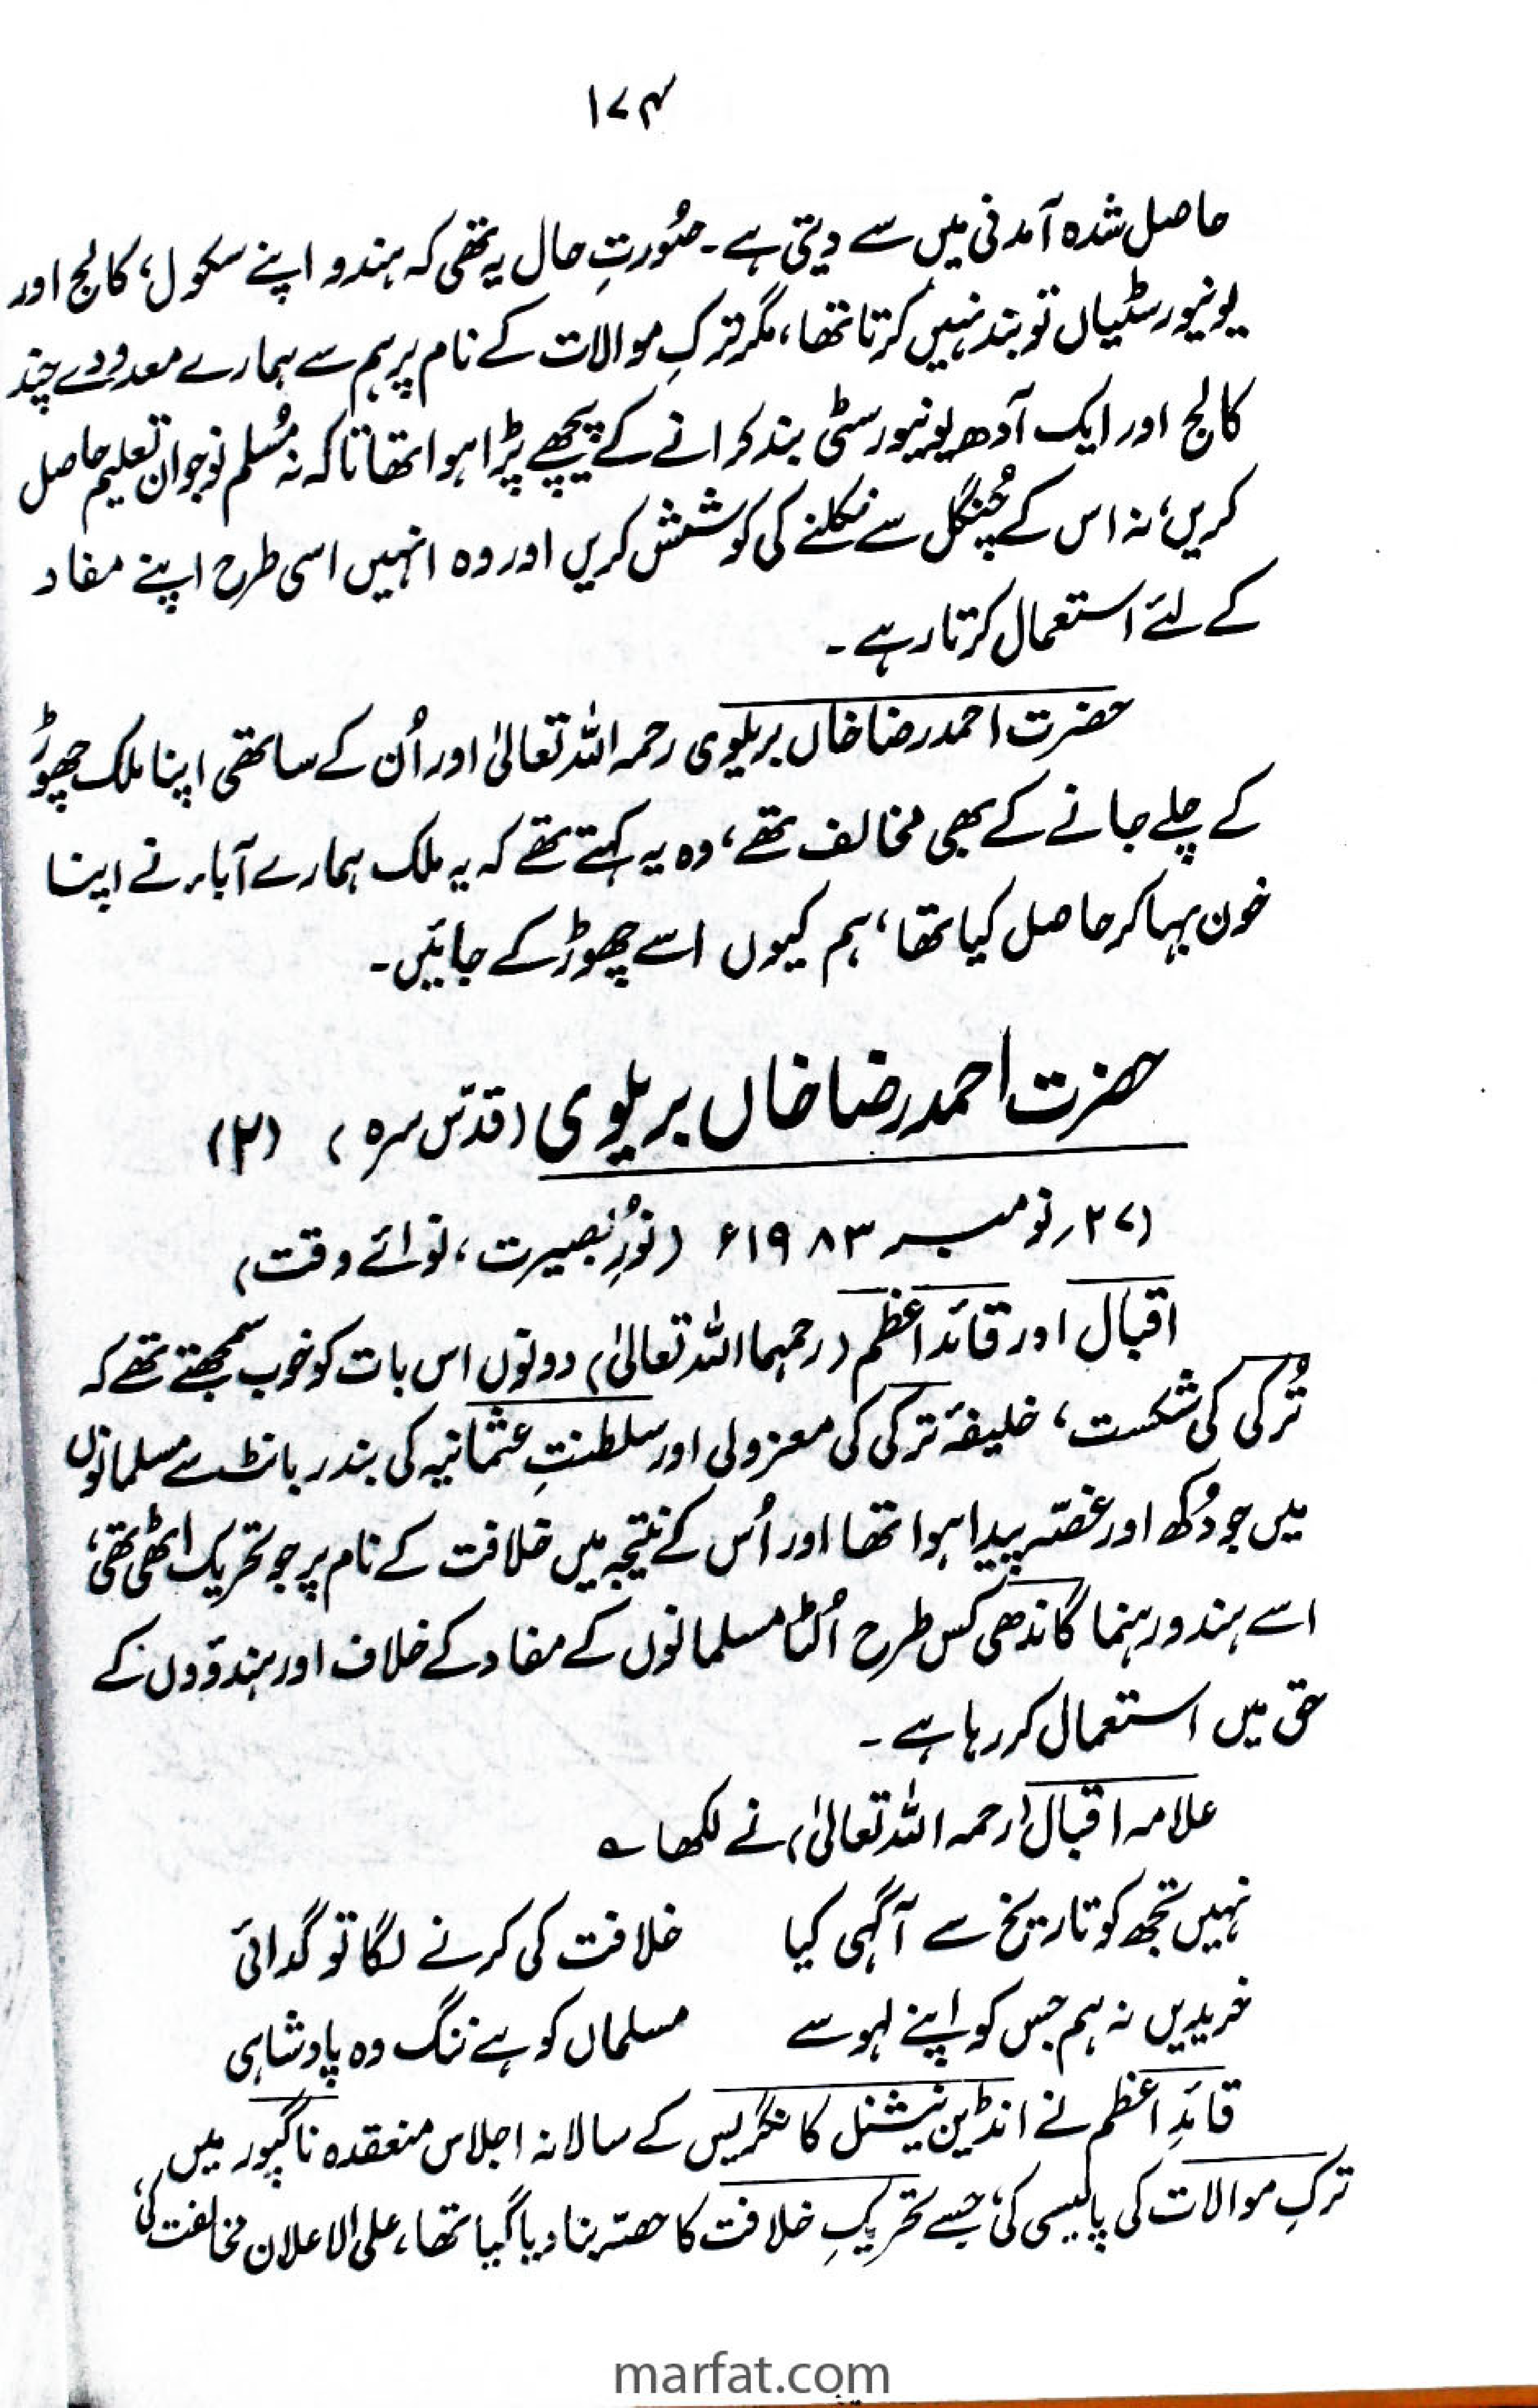 ۱۷۴
حاصل شدہ آمدنی میں سے دیتی ہے۔ صُورتِ حال یہ تھی کہ ہندو اپنے سکول، کالج اور
یونیورسٹیاں تو بند نہیں کرتا تھا، مگر ترکِ موالات کے نام پر ہم سے ہمارے معدودے چند
کالج اور ایک آدھ یونیورسٹی بند کرانے کے پیچھے پڑا ہوا تھا تاکہ نہ مُسلم نوجوان تعلیم حاصل
کریں، نہ اس کے چُنگل سے نکلنے کی کوشش کریں اور وہ انہیں اسی طرح اپنے مفاد
کے لئے استعمال کرتا رہے۔
حضرت احمد رضا خاں بریلوی رحمہ اللہ تعالیٰ اور اُن کے ساتھی اپنا ملک چھوڑ
کے چلے جانے کے بھی مخالف تھے، وہ یہ کہتے تھے کہ یہ ملک ہمارے آباء نے اپنا
خون بہا کر حاصل کیا تھا، ہم کیوں اسے چھوڑ کے جائیں۔
حضرت احمد رضا خاں بریلوی (قدّس سرہ) (۲)
(۲۷ر نومبر ۱۹۸۳ء (نُورِ بصیرت، نوائے وقت)
اقبال اور قائد اعظم (رحمہما اللہ تعالیٰ) دونوں اس بات کو خوب سمجھتے تھے کہ
تُرکی کی شکست، خلیفۂ ترکی کی معزولی اور سلطنتِ عثمانیہ کی بندر بانٹ سے مسلمانوں
میں جو دُکھ اور غصّہ پیدا ہوا تھا اور اُس کے نتیجہ میں خلافت کے نام پر جو تحریک اٹھی تھی،
اسے ہندو رہنما گاندھی کس طرح اُلٹا مسلمانوں کے مفاد کے خلاف اور ہندوؤں کے
حق میں استعمال کر رہا ہے۔
علامہ اقبال (رحمہ اللہ تعالیٰ) نے لکھا ؎
نہیں تجھ کو تاریخ سے آگہی کیا خلافت کی کرنے لگا تو گدائی
خریدیں نہ ہم جس کو اپنے لہو سے مسلماں کو ہے ننگ وہ پادشاہی
قائدِ اعظم نے انڈین نیشنل کانگریس کے سالانہ اجلاس منعقدہ ناگپور میں
ترکِ موالات کی پالیسی کی، جسے تحریکِ خلافت کا حصّہ بنا دیا گیا تھا، علی الاعلان مخالفت کی،
marfat.com